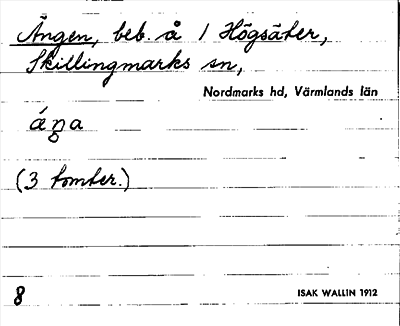 Ängen, beb. å 1 Högsäter,
Skillingmarks sn,
Nordmarks hd, Värmlands län
áŋa
(3 tomter.)
8
ISAK WALLIN 1912